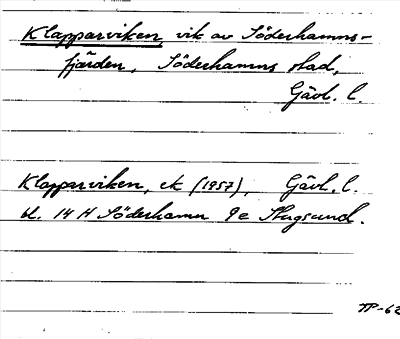 Klapparviken, vik av Söderhamns-
fjärden, Söderhamns stad,
Gävl. l.
Klapparviken, ek (1957), Gävl. l.
bl. 14 H Söderhamn 9e Stugsund.
TP-62